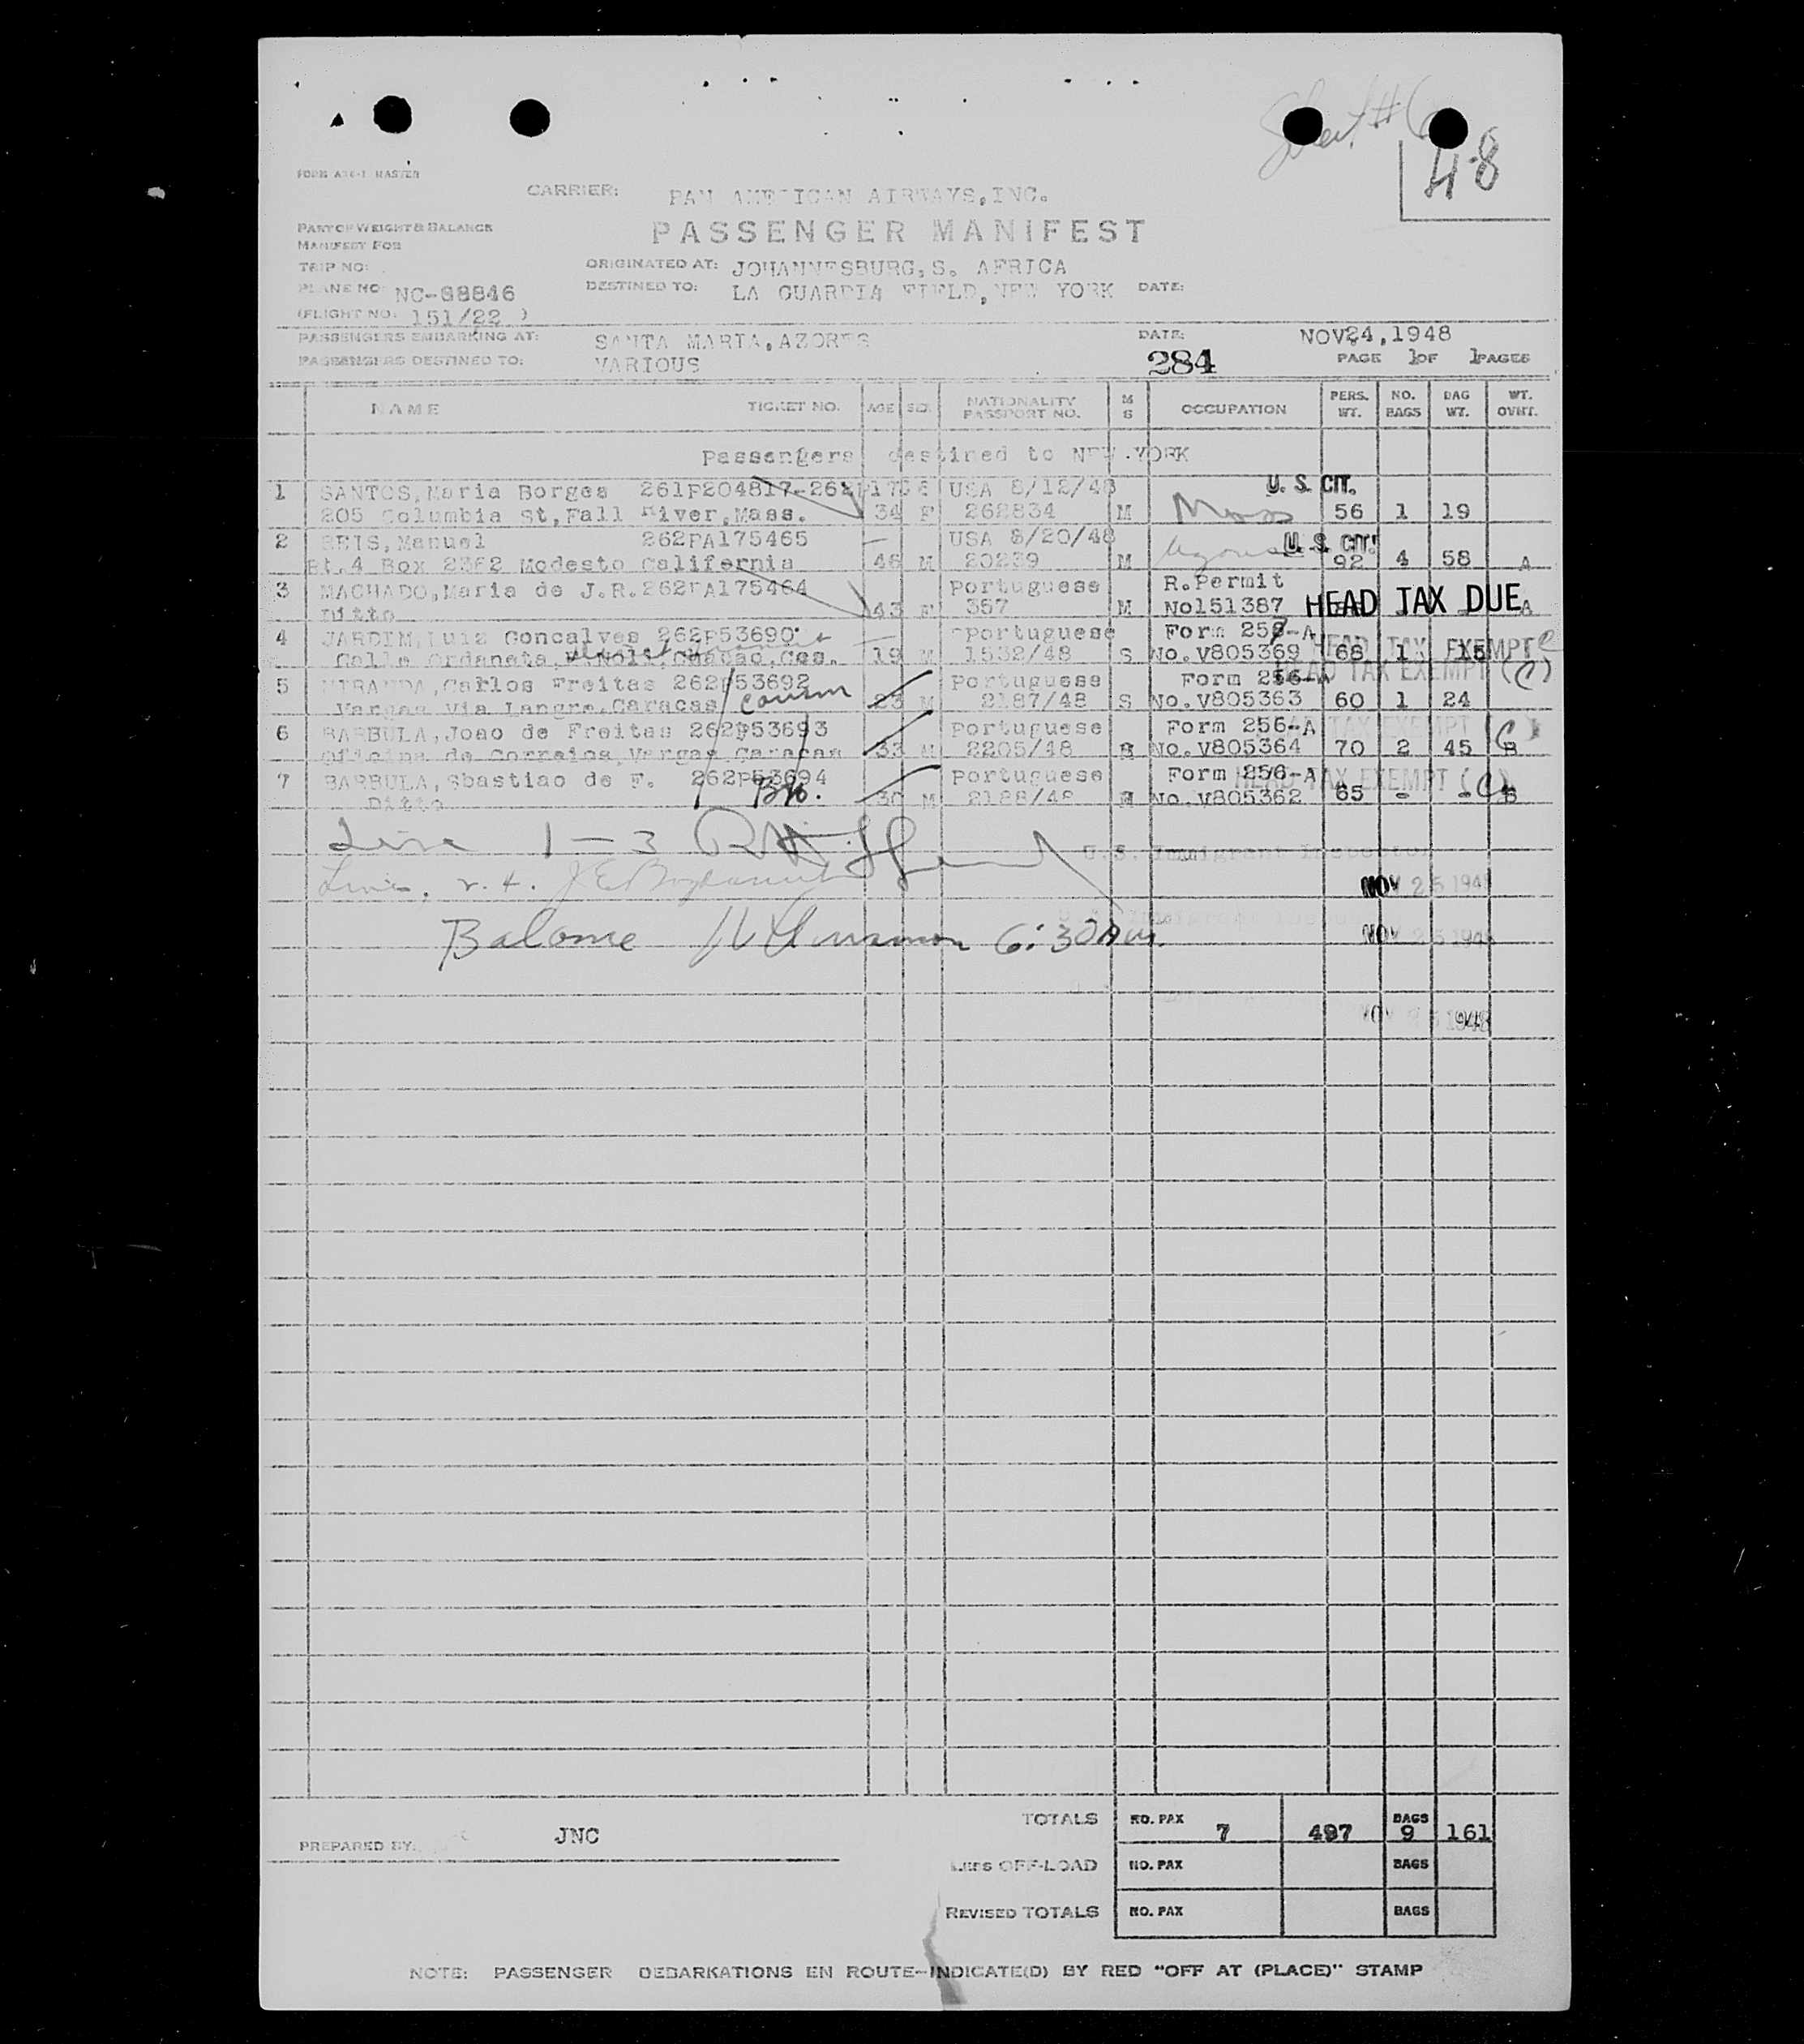 Sheet #6
48
FORM MASTER
CARRIER: PAN AMERICAN AIRWAYS, INC.
PART OF WEIGHT & BALANCE
MANIFEST FOR
PASSENGER MANIFEST
TRIP NO:
ORIGINATED AT: JOHANNESBURG, S. AFRICA
PLANE NO NC-88846
DESTINED TO: LA GUARDIA FIELD, NEW YORK DATE:
(FLIGHT NO. 151/22 )
PASSENGERS EMBARKING AT: SANTA MARIA, AZORES DATE: NOV 24, 1948
PASSENGERS DESTINED TO: VARIOUS 284 PAGE 1 OF 1 PAGES
NAME TICKET NO. AGE SEX NATIONALITY PASSPORT NO. M S OCCUPATION PERS. WT. NO. BAGS BAG WT. WT. OVHT.
Passengers destined to NEW YORK
1 SANTOS, Maria Borges 261P204817-262 USA 8/12/48 U. S. CIT.
205 Columbia St, Fall River, Mass. 34 F 262834 M 56 1 19
2 REIS, Manuel 262PA175465 USA 8/20/48 U. S. CIT.
Rt.4 Box 2362 Modesto California 46 M 20239 M 92 4 58 A
3 MACHADO, Maria de J.R. 262PA175464 Portuguese R.Permit
Ditto 43 F 367 M No151387 HEAD TAX DUE A
4 JARDIM, Luiz Goncalves 262P53690 Portuguese Form 257-A HEAD TAX EXEMPT C
Calle Ordaneta, 19 M 1532/48 S No.V805369 68 1 15
5 MIRANDA, Carlos Freitas 262P53692 Portuguese Form 256-A HEAD TAX EXEMPT (C)
Vargas Via Langre, Caracas 23 M 2187/48 S No.V805363 60 1 24
6 BARBULA, Joao de Freitas 262P53693 Portuguese Form 256-A HEAD TAX EXEMPT (C)
Oficina de Correios, Vargas Caracas 33 M 2205/48 S No.V805364 70 2 45 B
7 BARBULA, Sbastiao de F. 262P53694 Portuguese Form 256-A HEAD TAX EXEMPT (C)
Ditto 30 M 2188/48 M No.V805362 65 - - B
Line 1-3
U.S. Immigrant Inspector
NOV 25 1948
Balance 6:30 AM.
NOV 25 1948
NOV 25 1948
TOTALS NO. PAX 7 497 BAGS 9 161
PREPARED BY. JNC
LESS OFF-LOAD NO. PAX BAGS
REVISED TOTALS NO. PAX BAGS
NOTE: PASSENGER DEBARKATIONS EN ROUTE-INDICATE(D) BY RED "OFF AT (PLACE)" STAMP